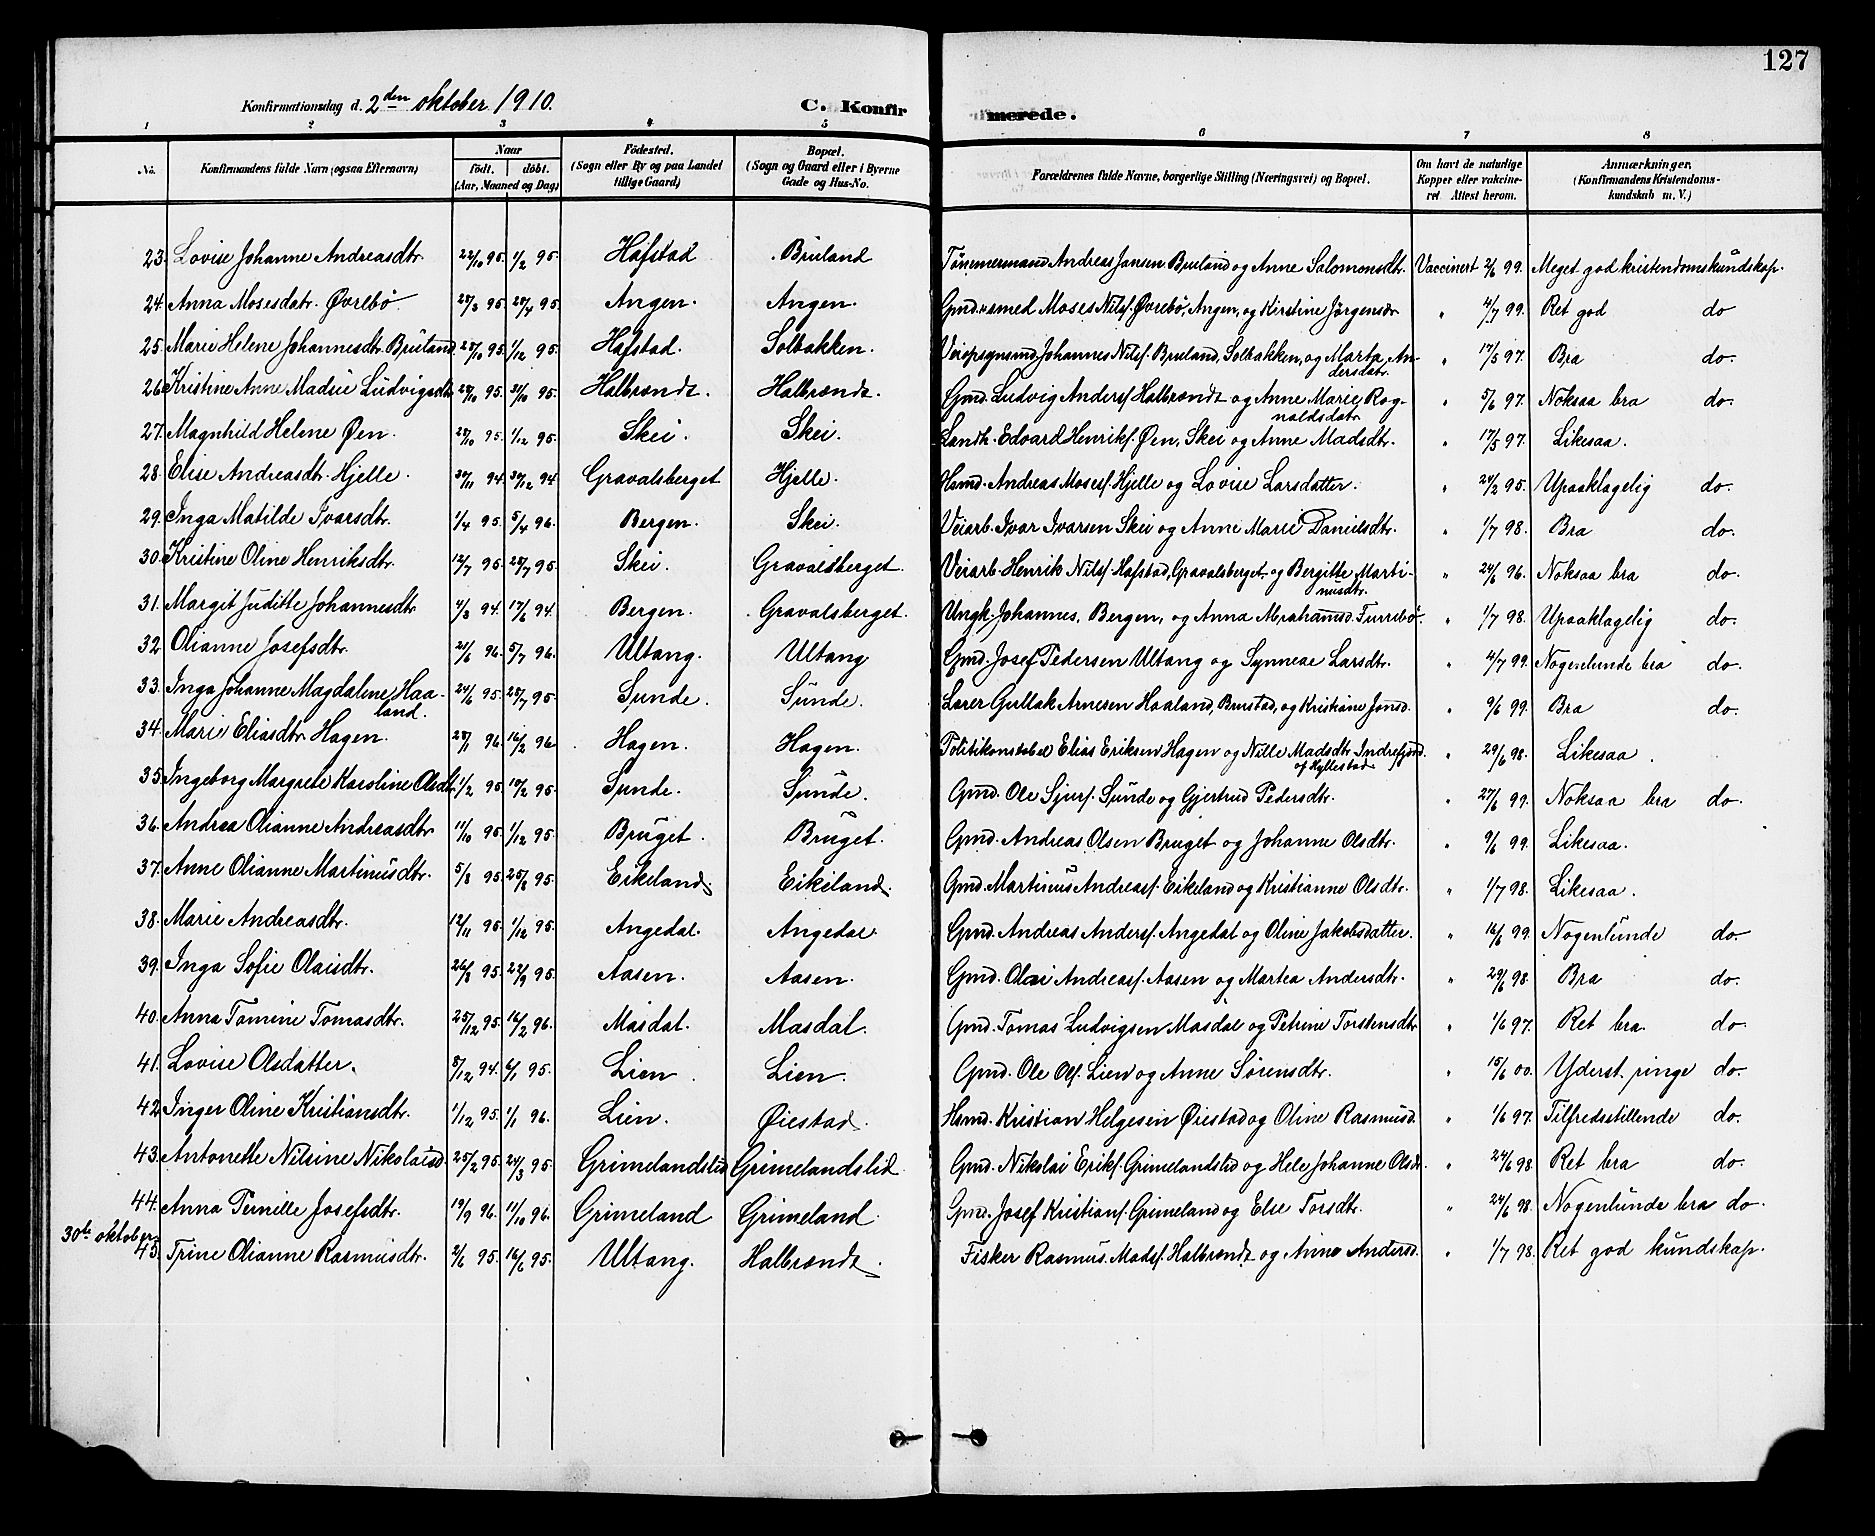 127
Konfirmationsdag d. 2den oktober 1910.
C. Konfirmerede.
1 2 3 4 5 6 7 8
No. Konfirmandens fulde Navn (ogsaa Efternavn) Naar födt. döbt. (Aar, Maaned og Dag) Födested. (Sogn eller By og paa Landet tillige Gaard) Bopæl. (Sogn og Gaard eller i Byerne Gade og Hus-No. Forældrenes fulde Navne, borgerlige Stilling (Næringsvei) og Bopæl. Om havt de naturlige Kopper eller vakcineret Attest herom. Anmærkninger, (Konfirmandens Kristendomskundskab m. V.)
23. Lovise Johanne Andreasdtr. 22/10 95. 1/2 95. Hafstad Bruland Tömmermand Andreas Jansen Bruland og Anne Salomonsdtr. Vaccinert 2/6 99. Meget god kristendomskundskap.
24. Anna Mosesdatr. Øvrebö 28/3 95 28/4 95. Angen. Angen. Gmd. smed Moses Nilsf. Øvrebö, Angen, og Kirstine Jörgensdr " 4/7 99. Ret god do
25. Marie Helene Johannesdtr. Bruland 28/10 95. 1/12 95. Hafstad. Solbakken. Veiopsynsmd Johannes Nilsf. Bruland, Solbakken, og Marta Andersdatr. " 17/5 97. Bra do.
26. Kristine Anne Madsie Ludvigsdtr 28/10 95. 31/10 95. Halbrendt. Halbrendt. Gmd. Ludvig Andersf. Halbrendt og Anne Marie Rognaldsdatr " 5/6 97. Noksaa bra do.
27. Magnhild Helene Øen. 28/10 95. 1/12 95. Skei. Skei. Landh. Edvard Henriksf. Øen, Skei og Anne Madsdtr. " 17/5 97. Likesaa.
28. Elise Andreasdtr. Hjelle. 30/11 94. 30/12 94 Gravalsberget Hjelle. Hsmd. Andreas Mosesf. Hjelle og Lovise Larsdatter. " 24/2 95. Upaaklagelig do.
29. Inga Matilde Ivarsdtr. 1/4 95. 5/4 96. Bergen. Skei. Veiarb. Ivar Ivarsen Skei og Anne Marie Danielsdtr. " 1/7 98. Bra do.
30. Kristine Oline Henriksdtr. 12/7 95. 28/7 95. Skei. Gravalsberget. Veiarb. Henrik Nilsf. Hafstad, Gravalsberget og Bergitte Martinusdtr. " 24/6 96. Noksaa bra do.
31. Margit Juditte Johannesdtr 4/3 94. 17/6 94. Bergen. Gravalsberget. Ungk. Johannes, Bergen, og Anna Abrahamsd. Furrebö. " 1/7 98. Upaaklagelig do.
32 Olianne Josefsdtr. 21/6 96. 5/7 96. Ultang. Ultang Gmd. Josef Pedersen Ultang og Synneae Larsdtr. " 4/7 99. Nogenlunde bra do.
33. Inga Johanne Magdalene Haaland. 24/6 95. 28/7 95. Sunde. Sunde. Lærer Gullak Arnesen Haaland, Brustad, og Kristiane Jonsd. " 9/6 99. Bra do.
34. Marie Eliasdtr Hagen. 28/1 96. 16/2 96 Hagen. Hagen. Politikonstabel Elias Eriksen Hagen og Nille Madsdtr. Indrefjord. af Hyllestad " 29/6 98. Likesaa.
35. Ingeborg Margrete Karoline Olsdtr. 1/2 95. 10/2 95. Sunde. Sunde. Gmd. Ole Sjurs. Sunde og Gjertrud Pedersdtr. " 27/6 99. Noksaa bra do.
36. Andrea Olianne Andreasdtr 11/10 95. 1/12 95. Bruget. Bruget. Gmd. Andreas Olsen Bruget og Johanne Olsdtr. " 9/6 99. Likesaa.
37. Anne Olianne Martinusdtr. 5/8 95. 25/8 95. Eikeland. Eikeland. Gmd. Martinus Andreasf. Eikeland og Kristianne Olsdtr. " 1/7 98. Likesaa.
38. Marie Andreasdtr. 12/11 95. 1/12 95. Angedal. Angedal. Gmd. Andreas Andersf. Angedal og Oline Jakobsdatter. " 16/6 99. Nogenlunde do.
39. Inga Sofie Olaisdtr. 26/8 95. 22/9 95. Aasen. Aasen. Gmd. Olai Andreasf. Aasen og Martea Andersdtr. " 29/6 98. Bra do.
40. Anna Tomine Tomasdtr. 25/12 95. 16/2 96. Masdal. Masdal. Gmd. Tomas Ludvigsen Masdal og Petrine Torstensdtr " 1/6 97. Ret bra do.
41. Lovise Olsdatter. 8/12 94. 6/1 95. Lien. Lien. Gmd. Ole Olsf. Lien og Anne Sörensdtr. " 15/6 00. Yderst ringe do.
42. Inger Oline Kristiansdtr. 1/12 95. 1/1 96. Lien. Øiestad. Hsmd. Kristian Helgesen Øiestad og Oline Rasmusd. " 1/6 97. Tilfredsstillende do.
43. Antonette Nilsine Nikolaisd. 25/2 95. 24/3 95. Grimelandslid Grimelandslid Gmd. Nikolai Eriksf. Grimelandslid og Hele Johanne Olsdr. " 24/6 98. Ret bra do.
44. Anna Pernille Josefsdtr. 19/9 96. 11/10 96. Grimeland Grimeland. Gmd. Josef Kristianf. Grimeland og Else Torsdtr. " 24/6 98. Nogenlunde bra do.
30te oktober.
45. Trine Olianne Rasmusdtr. 2/6 95. 16/6 95. Ultang. Halbrendt. Fisker Rasmus Madsf. Halbrendt og Anne Andersd. " 1/7 98. Ret god kundskap.